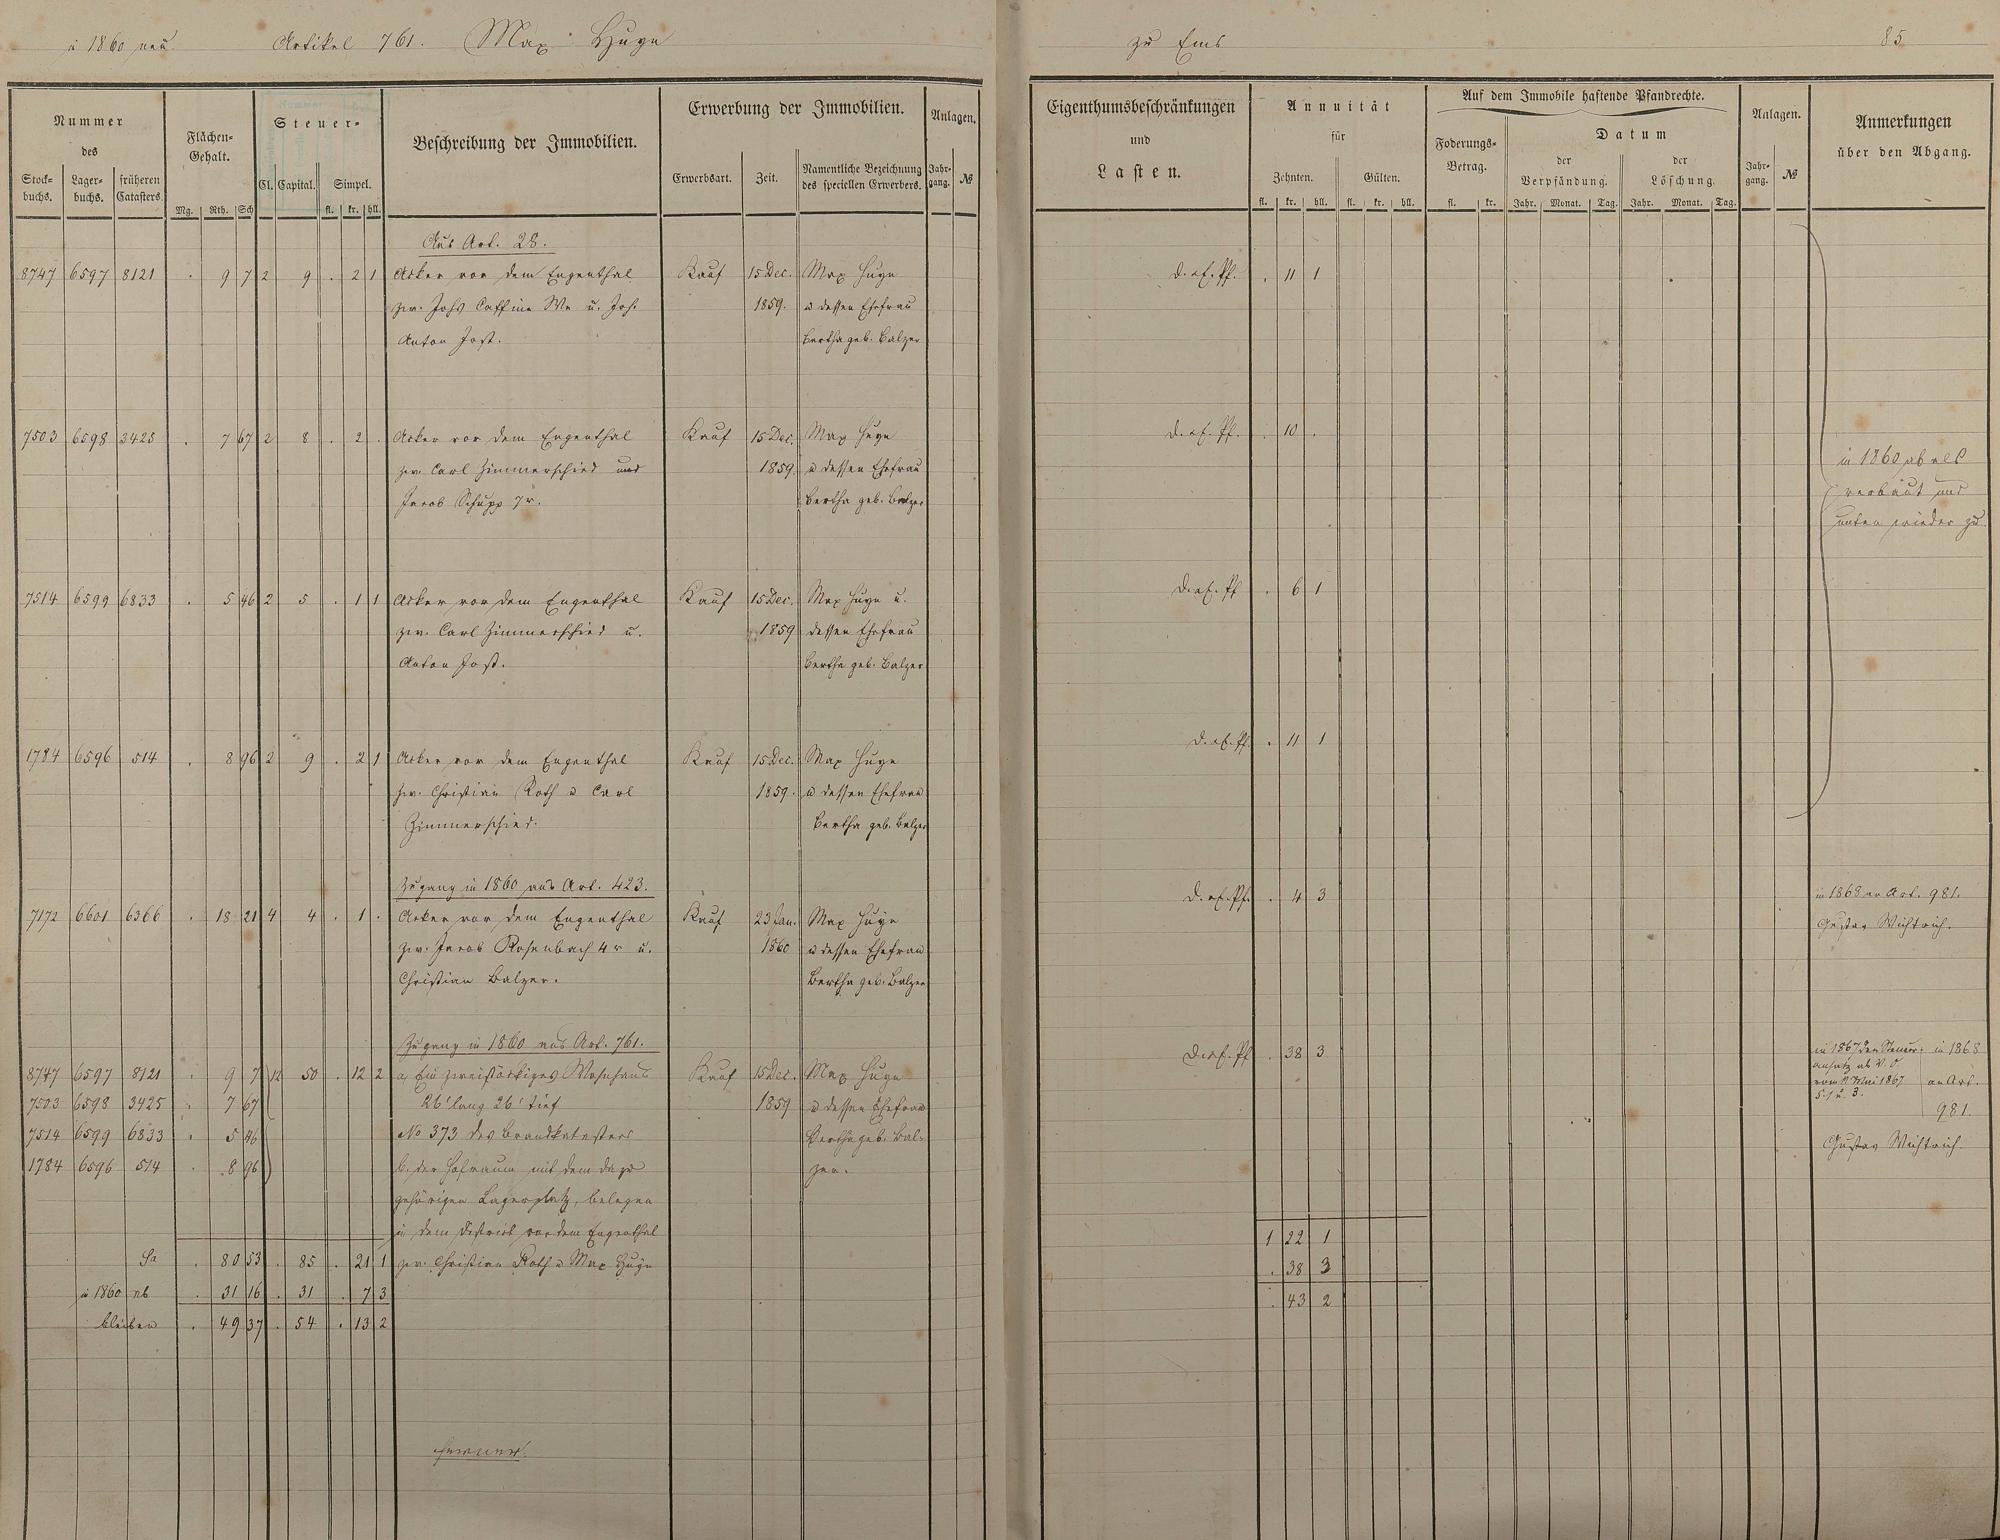 in 1860 neu Artikel 761. Max Huyn zu Ems 85
Nummer des
Stockbuchs. Lagerbuchs. früheren Catasters.
Flächen-Gehalt.
Mg. Rth. Sch
Steuer-
Cl. Capital. Simpel.
fl. kr. hll.
Beschreibung der Immobilien.
Erwerbung der Immobilien.
Erwerbsart. Zeit. Namentliche Bezeichnung des speciellen Erwerbers.
Anlagen.
Jahrgang. №
Eigenthumsbeschränkungen
und
Lasten.
Annuität
für
Zehnten. Gülten.
fl. kr. hll. fl. kr. hll.
Auf dem Immobile haftende Pfandrechte.
Foderungs-Betrag.
fl. kr.
Datum
der Verpfändung. der Löschung.
Jahr. Monat. Tag. Jahr. Monat. Tag.
Anlagen.
Jahrgang. №
Anmerkungen
über den Abgang.
Aus Art. 28.
8747 6597 8121 . 9 7 2 9 . 2 1 Acker vor dem Engenthal Kauf 15 Dec. Max Huyn . 11 1
zw. Johs Caffine We u. Joh. 1859. u dessen Ehefrau
Anton Jost. Bertha geb. Balzer
7503 6598 3425 . 7 67 2 8 . 2 . Acker vor dem Engenthal Kauf 15 Dec. Max Huyn . 10 .
zw. Carl Zimmerschied und 1859. u dessen Ehefrau in 1860 ab als
Jacob Schupp 7r. Bertha geb. Balzer verbaut und
unten wieder zu
7514 6599 6833 . 5 46 2 5 . 1 1 Acker vor dem Engenthal Kauf 15 Dec. Max Huyn u. . 6 1
zw. Carl Zimmerschied u. 1859 dessen Ehefrau
Anton Jost. Bertha geb. Balzer
1784 6596 514 . 8 96 2 9 . 2 1 Acker vor dem Engenthal Kauf 15 Dec. Max Huyn . 11 1
zw. Christian Roth u Carl 1859. u dessen Ehefrau
Zimmerschied. Bertha geb. Balzer
Zugang in 1860 aus Art. 423.
7172 6601 6366 . 18 21 4 4 . 1 . Acker vor dem Engenthal Kauf 23 Jan. Max Huyn . 4 3 in 1868 an Art. 981.
zw. Jacob Rosenbach 4r u. 1860 u dessen Ehefrau Gustav Wichtrich.
Christian Balzer. Bertha geb. Balzer
Zugang in 1860 aus Art. 761.
8747 6597 8121 . 9 7 12 50 . 12 2 a, Ein zweistöckiges Wohnhaus Kauf 15 Dec. Max Huyn . 38 3 in 1867 der Steueransatz ab V. O. vom 11 Mai 1867 in 1868 an Art. 981.
7503 6598 3425 . 7 67 26' lang 26' tief 1859 u dessen Ehefrau
7514 6599 6833 . 5 46 No 373 des Brandkatasters Bertha geb. Bal- Gustav Wichtrich.
1784 6596 514 . 8 96 b. der Hofraum mit dem dazu zer.
gehörigen Lagerplatz, belegen
in dem District vor dem Engenthal 1 22 1
Sa . 80 53 . 85 . 21 1 zw. Christian Roth u Max Huyn . 38 3
in 1860 ab . 31 16 . 31 . 7 3 . 43 2
bleiben . 49 37 . 54 . 13 2